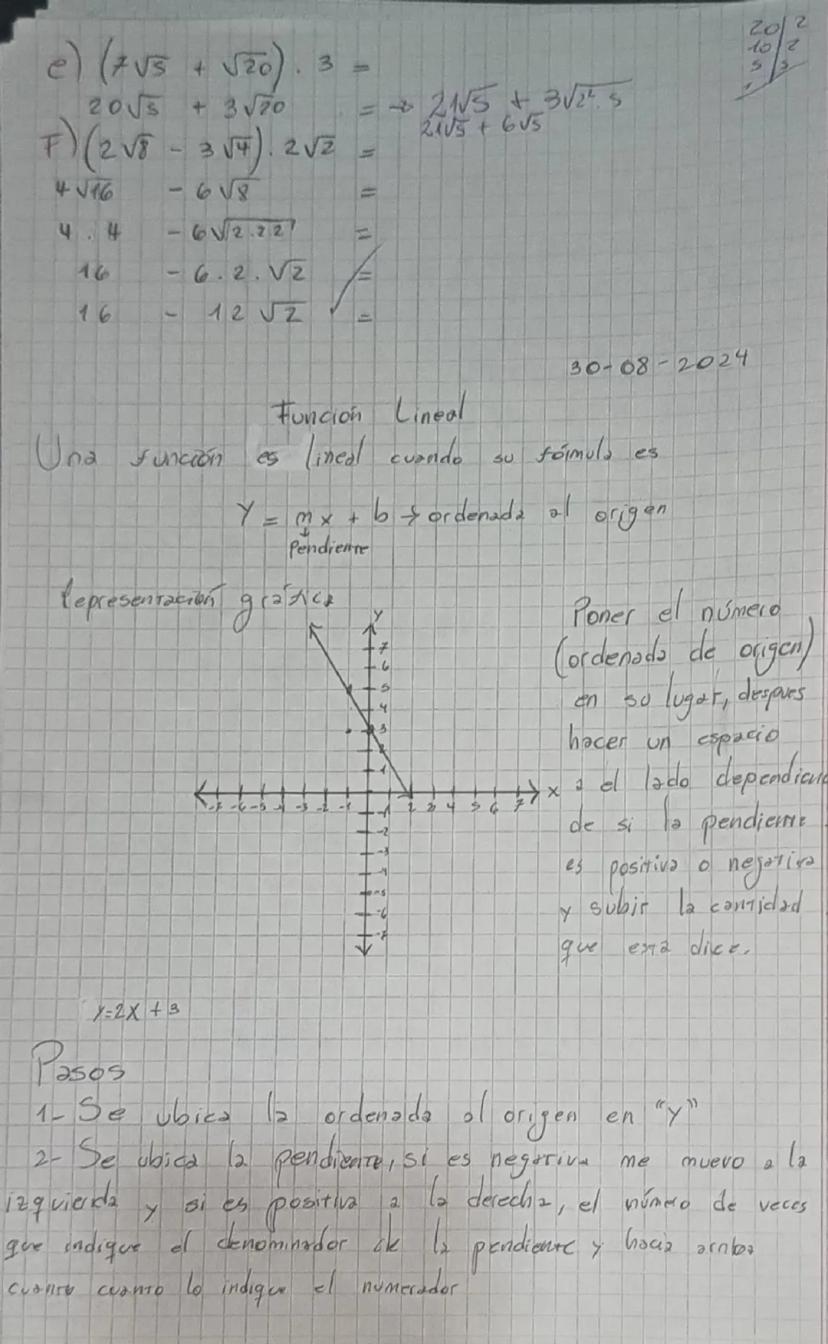 20 2
10 2
5 5
1
e) (7√5 + √20) . 3 =
20√5 + 3√20 = → 21√5 + 3√2².5
21√5 + 6√5
F) (2√8 - 3√4) . 2√2 =
4√16 - 6√8 =
4 . 4 - 6√2.22 =
16 - 6.2.√2 =
16 - 12√2 =
30-08-2024
Función Lineal
Una función es lineal cuando su fórmula es
Y = mx + b → ordenada al origen
Pendiente
Representación gráfica
Y
7
6
5
4
3
2
1
-7 -6 -5 -4 -3 -2 -1 1 2 3 4 5 6 7 X
-1
-2
-3
-4
-5
-6
-7
Poner el número
(ordenada de origen)
en su lugar, despues
hacer un espacio
a el lado dependien
de si la pendiente
es positiva o negativa
y subir la cantidad
que esta dice.
y=2x + 3
Pasos
1- Se ubica la ordenada al origen en "y"
2- Se ubica la pendiente, si es negativa me muevo a la
izquierda y si es positiva a la derecha, el número de veces
que indique el denominador de la pendiente y hacia arriba
cuanto cuanto lo indique el numerador